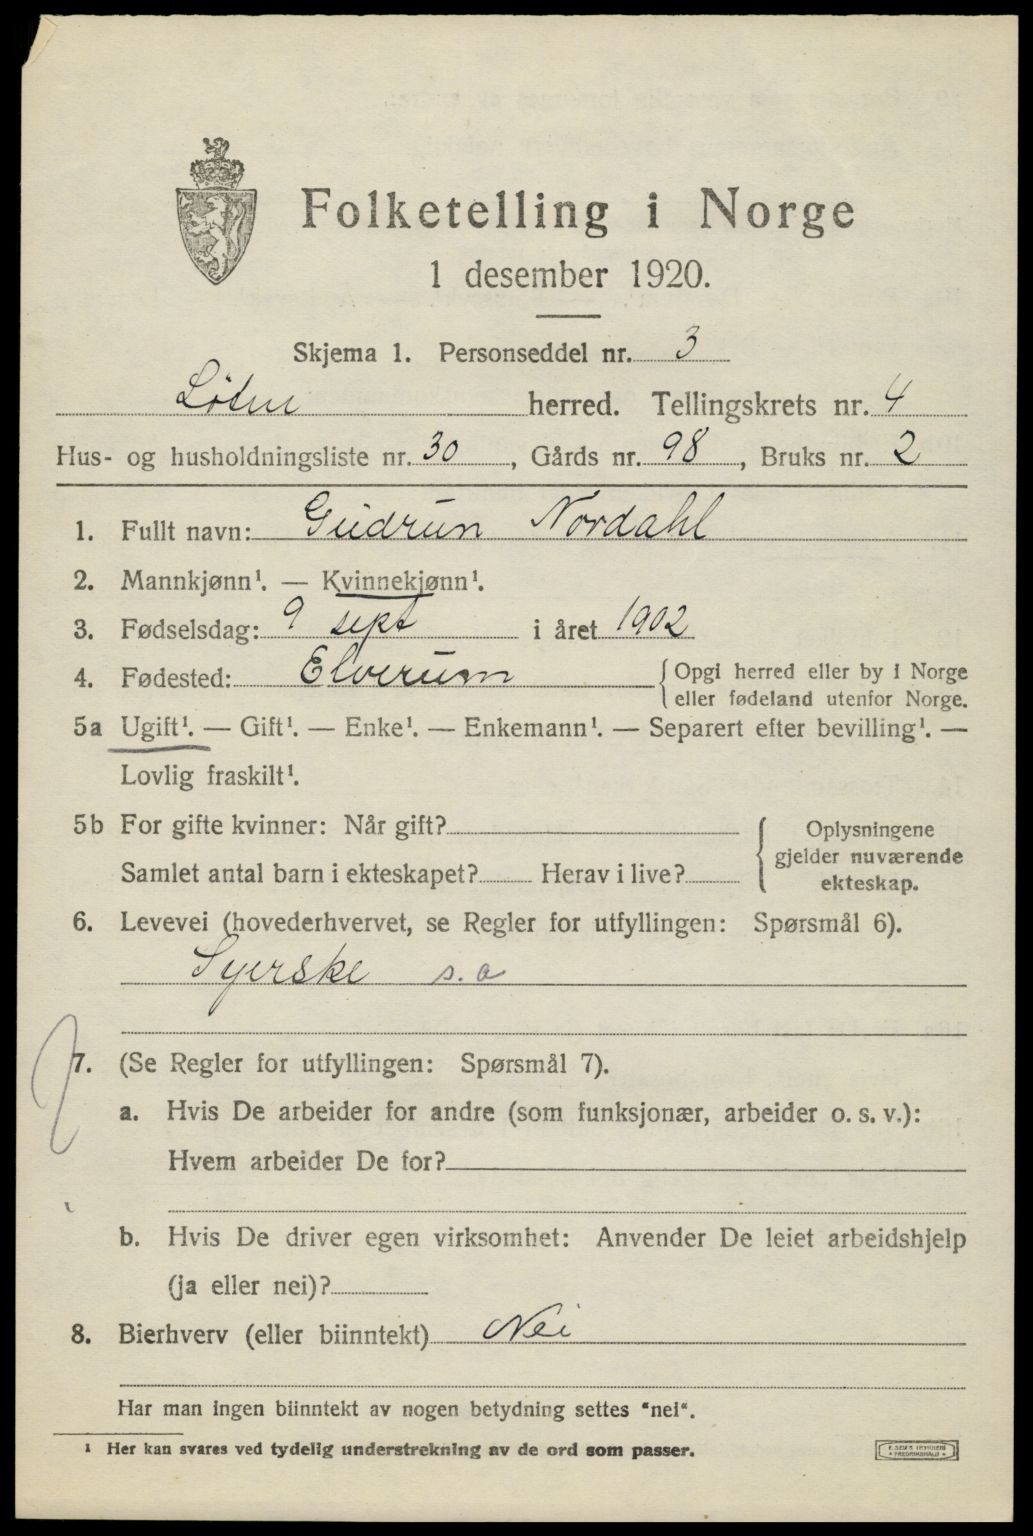 Folketelling i Norge
1 desember 1920.
Skjema 1. Personseddel nr. 3
Løten herred. Tellingskrets nr. 4
Hus- og husholdningsliste nr. 30, Gårds nr. 98, Bruks nr. 2
1. Fullt navn: Gudrun Nordahl
2. Mannkjønn¹. — Kvinnekjønn¹.
3. Fødselsdag: 9 sept i året 1902
4. Fødested: Elverum { Opgi herred eller by i Norge
eller fødeland utenfor Norge.
5a Ugift¹. — Gift¹. — Enke¹. — Enkemann¹. — Separert efter bevilling¹. —
Lovlig fraskilt¹.
5b For gifte kvinner: Når gift? { Oplysningene
gjelder nuværende
Samlet antal barn i ekteskapet? Herav i live?
ekteskap.
6. Levevei (hovederhvervet, se Regler for utfyllingen: Spørsmål 6).
Syerske s. a
7. (Se Regler for utfyllingen: Spørsmål 7).
a. Hvis De arbeider for andre (som funksjonær, arbeider o. s. v.):
Hvem arbeider De for?
b. Hvis De driver egen virksomhet: Anvender De leiet arbeidshjelp
(ja eller nei)?
8. Bierhverv (eller biinntekt) Nei
Har man ingen biinntekt av nogen betydning settes "nei".
¹ Her kan svares ved tydelig understrekning av de ord som passer.